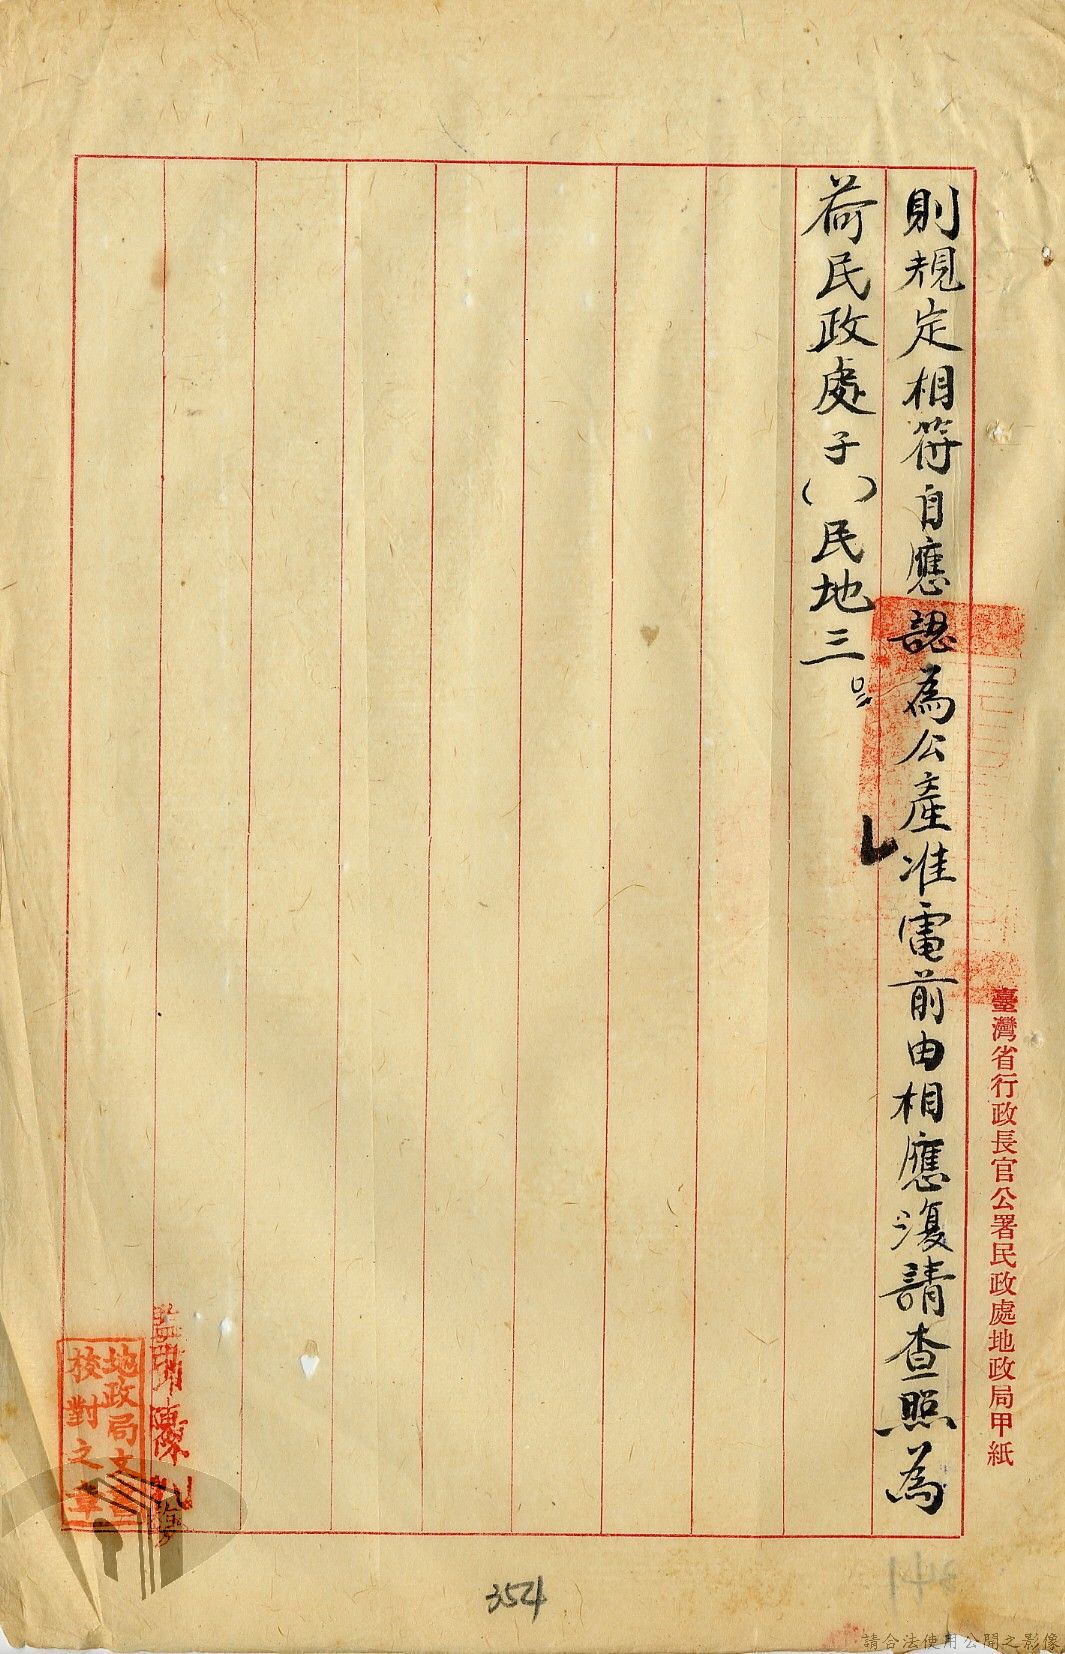 則規定相符自應認為公產准電前由相應復請查照為
荷民政處子（ ）民地三
臺灣省行政長官公署民政處地政局甲紙
地政局文書
校對之章
監印陳
354
請合法使用公開之影像